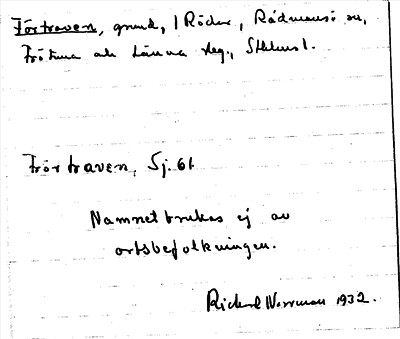 Förtraven, grund, i Röder, Rådmansö sn,
Frötuna och Länna skg., Sthlms l.
Förtraven, Sj. 61
Namnet brukas ej av
ortsbefolkningen.
Rickard Norrman 1932.